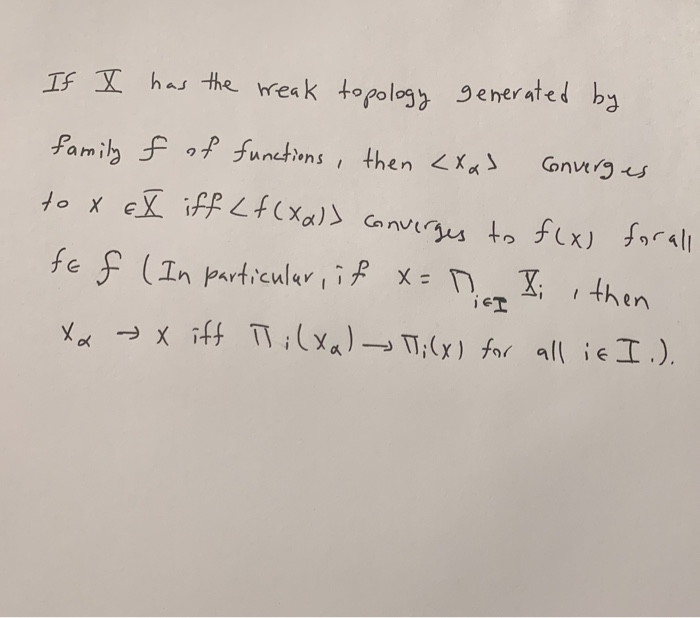 If X has the weak topology generated by
family f of functions, then <xα> converges
to x ∈ X iff <f(xα)> converges to f(x) for all
f ∈ f (In particular, if x = Π i∈I Xi, then
xα → x iff πi(xα) → πi(x) for all i ∈ I.).